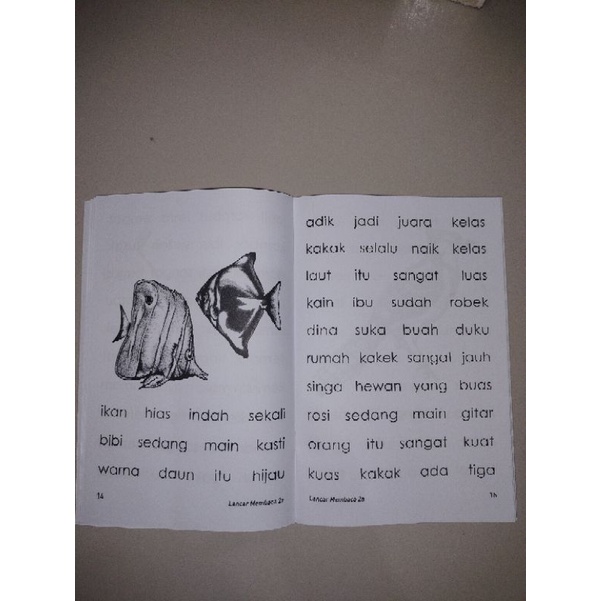 ikan hias indah sekali
bibi sedang main kasti
warna daun itu hijau
14
Lancar Membaca 2a
adik jadi juara kelas
kakak selalu naik kelas
laut itu sangat luas
kain ibu sudah robek
dina suka buah duku
rumah kakek sangat jauh
singa hewan yang buas
rosi sedang main gitar
orang itu sangat kuat
kuas kakak ada tiga
Lancar Membaca 2a
15